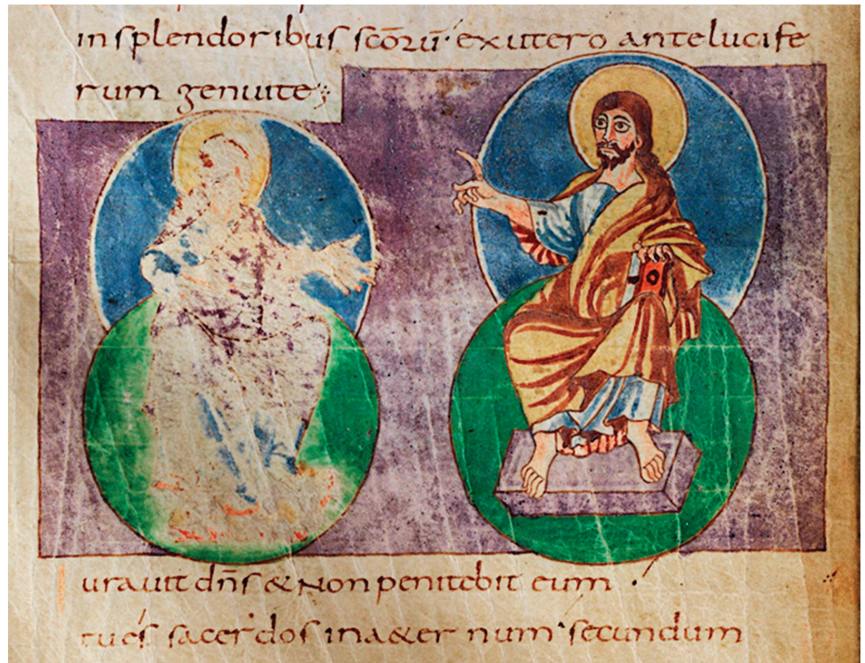 in splendoribus scōrū· ex utero ante lucife
rum genui te;
urauit dñs & non penitebit eum ·
tu es sacerdos in a&ernum secundum